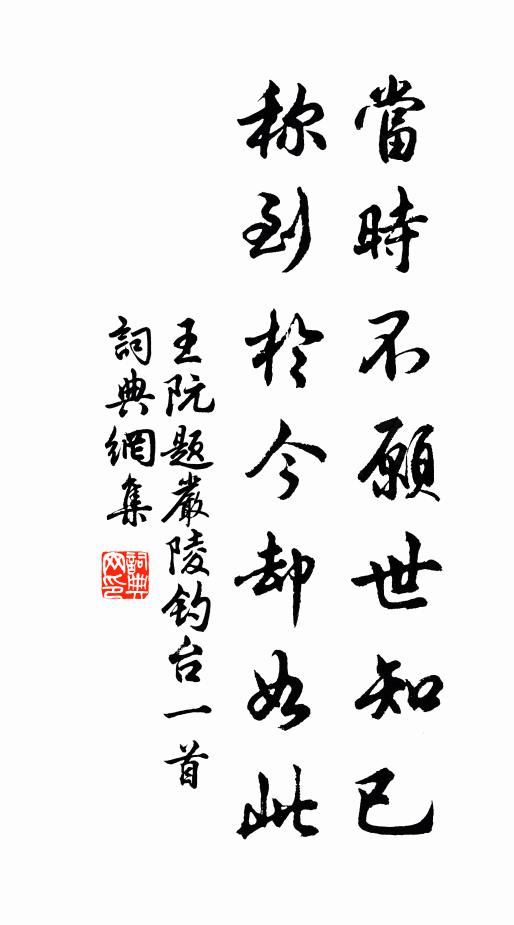 當時不願世知已
称到於今却如此
王阮題嚴陵釣台一首
詞典網集
詞典網印